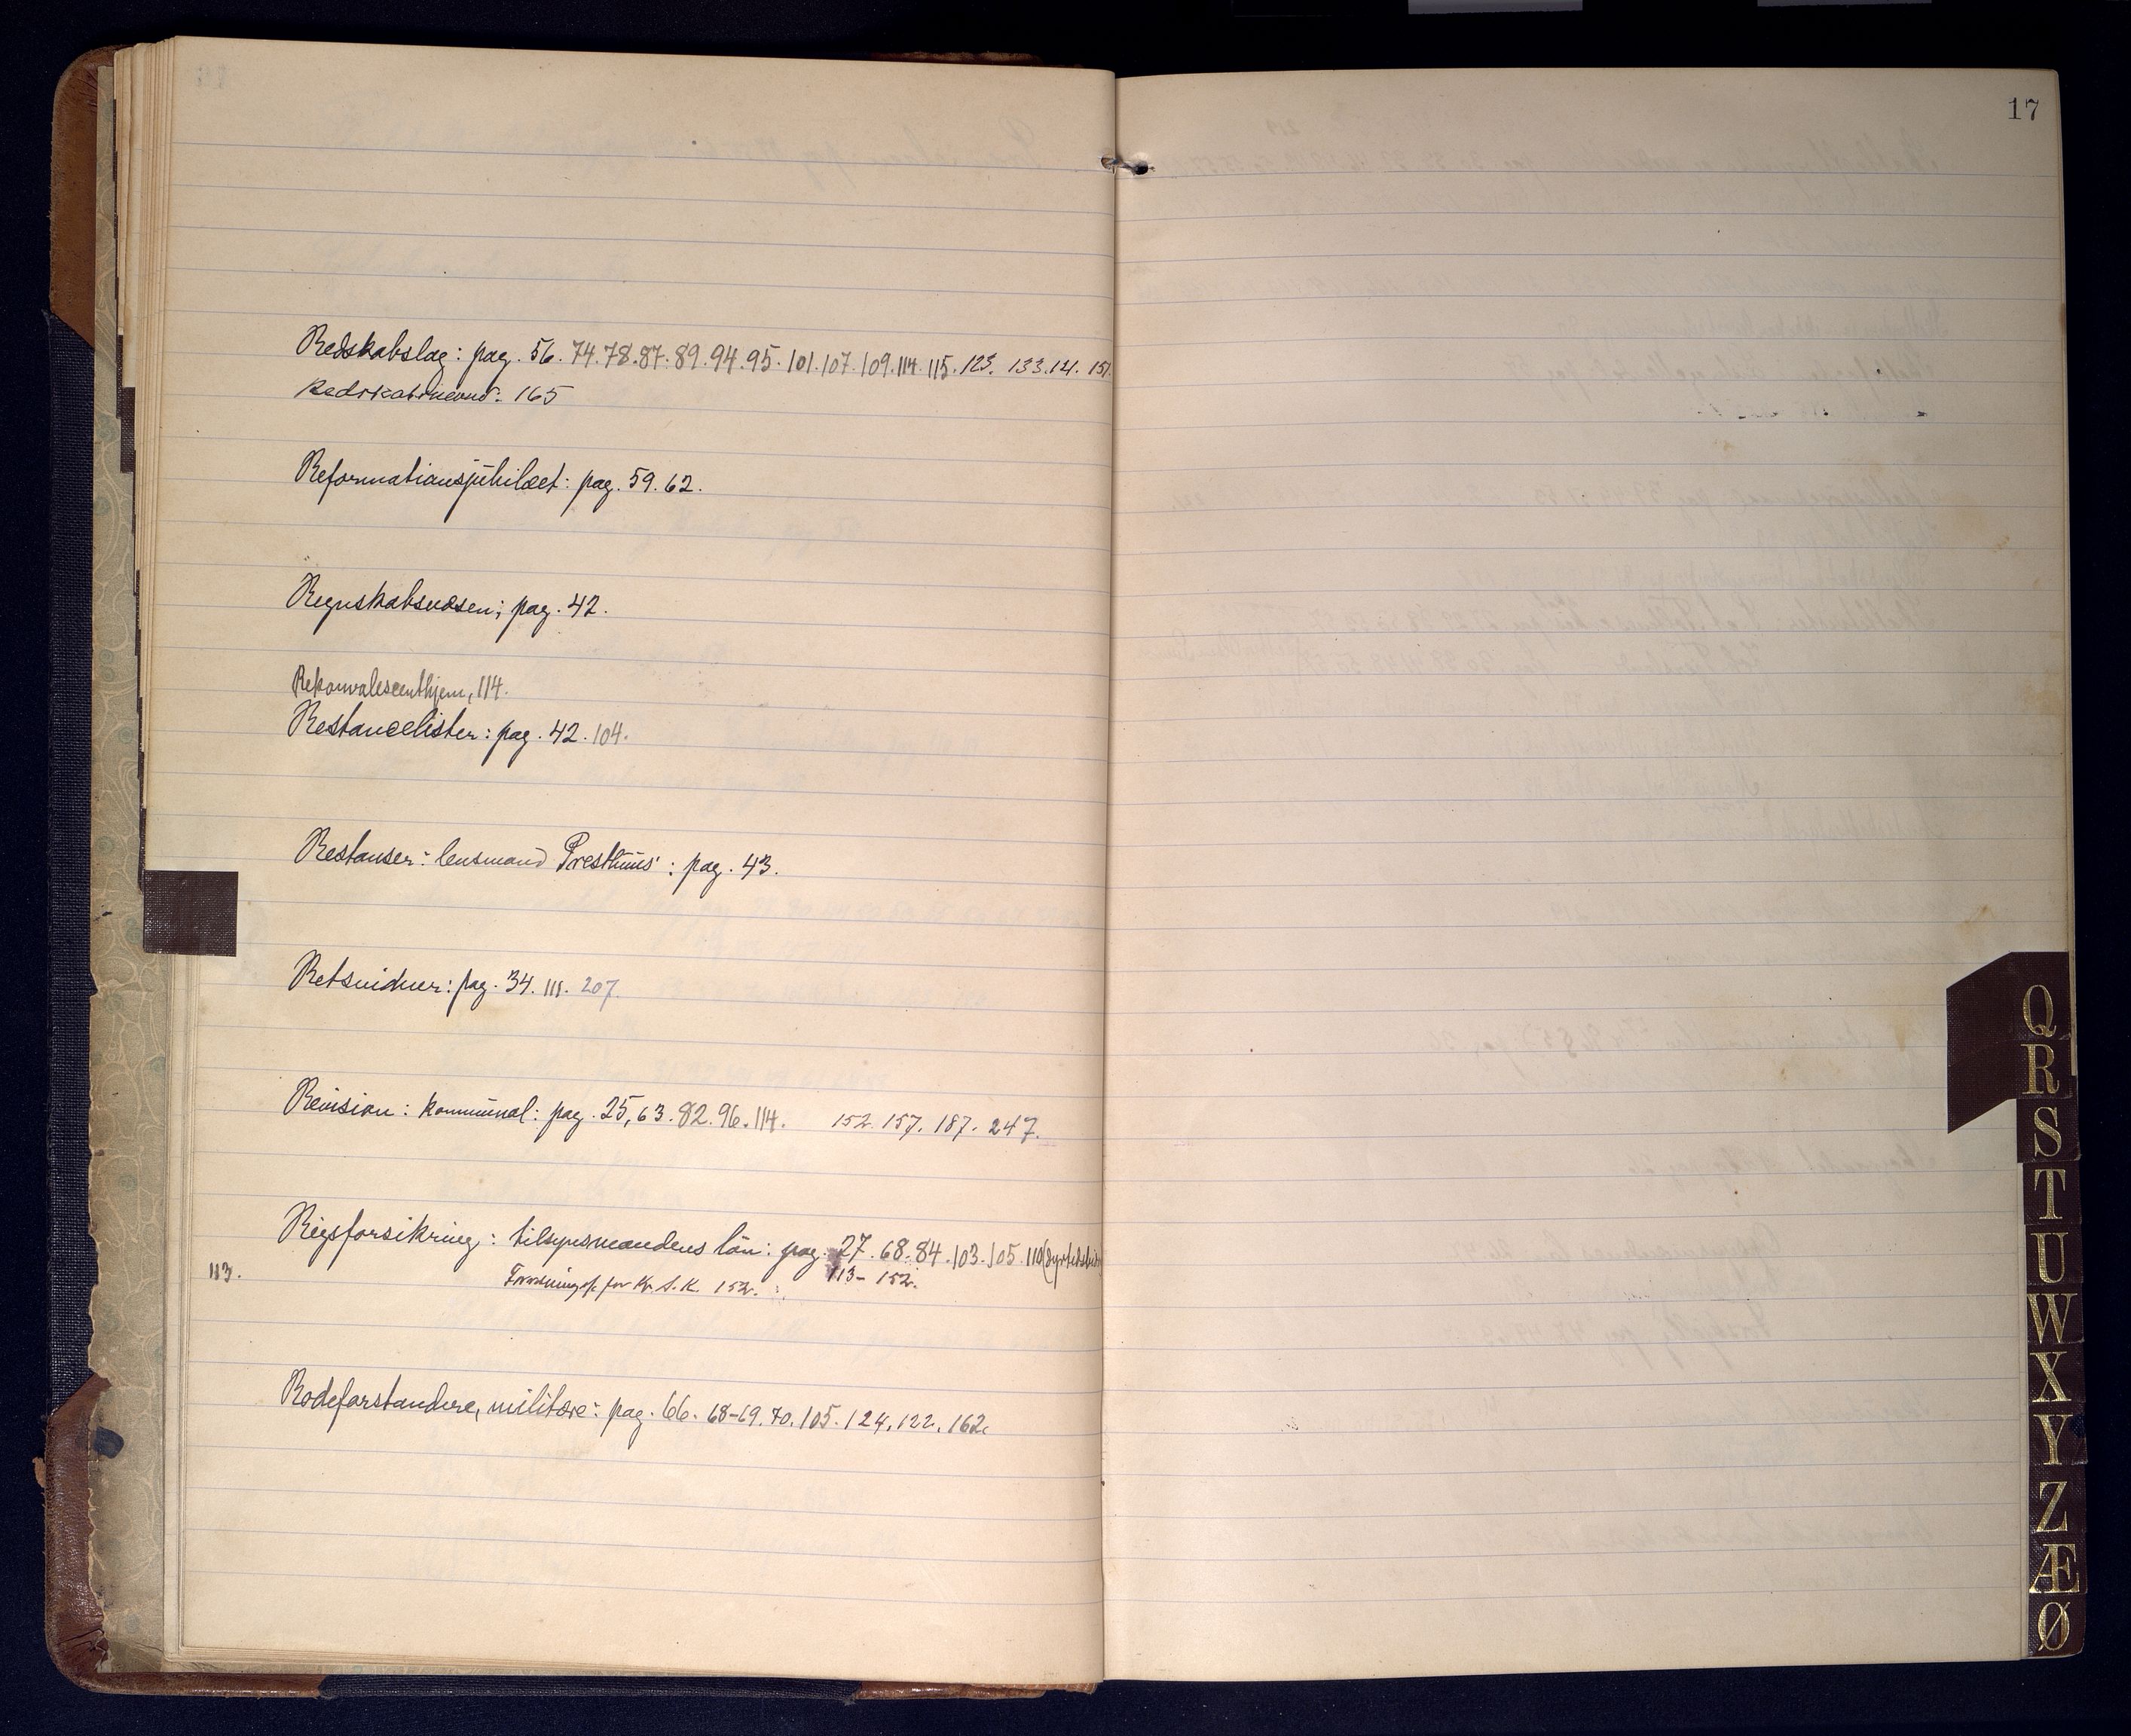 17
Redskabslag: pag. 56. 74. 78. 87. 89. 94. 95. 101. 107. 109. 114. 115. 123. 133. 141. 151.
Redskabsnevnd: 165
Reformationsjubilæet: pag. 59. 62.
Regnskabsvæsen; pag. 42.
Rekonvalescenthjem, 114.
Restancelister: pag. 42. 104.
Restanser: lensmand Presthuus': pag. 43.
Retsvidner: pag. 34. 111. 207.
Revision: kommunal: pag. 25, 63. 82. 96. 114. 152. 157. 187. 247.
Rigsforsikring: tilsynsmandens løn: pag. 27. 68. 84. 103. 105. 110
113. for Kr. S. K. 152. 113- 152.
Rodeforstandere, militære: pag. 66. 68-69. 70. 105. 124. 122. 162.
Q
R
S
T
U
W
X
Y
Z
Æ
Ø